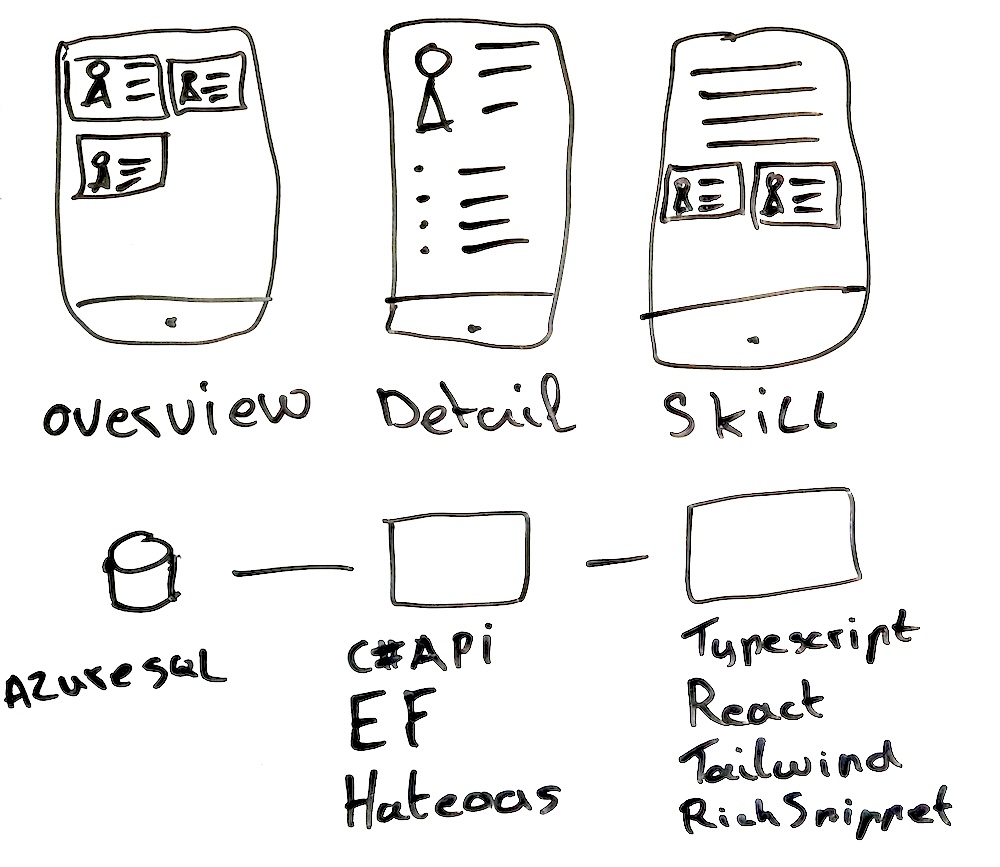 overview
Detail
Skill
Azure SQL
C# API
EF
Hateoas
Typescript
React
Tailwind
RichSnippet